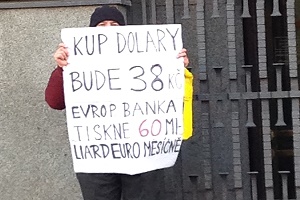 KUP DOLARY
BUDE 38 KČ
EVROP BANKA
TISKNE 60 MI-
LIARD EURO MESÍČNĚ